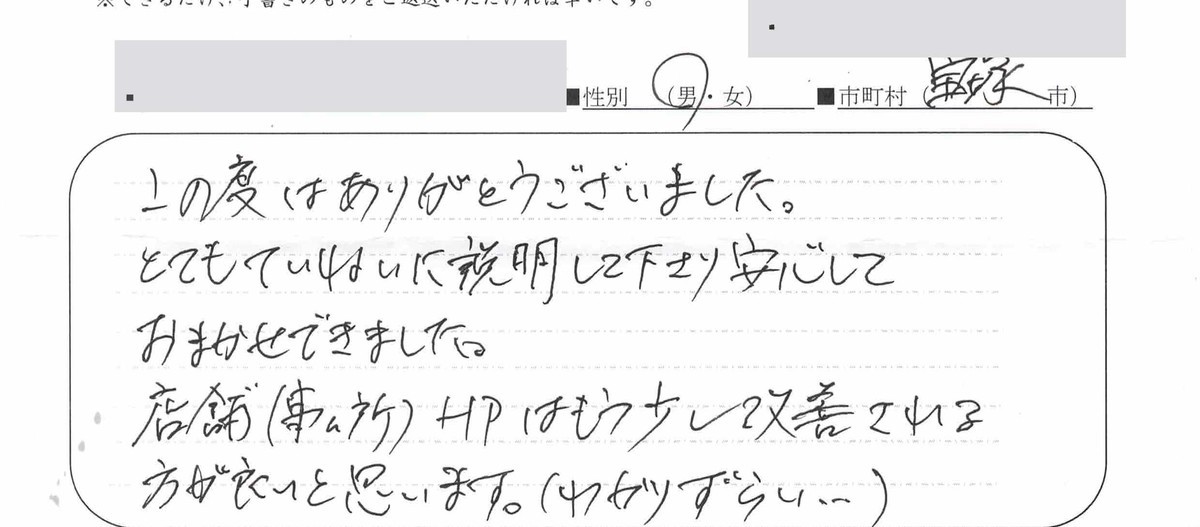 ※できるだけ、手書きのものをご返送いただければ幸いです。
■性別 （男・女） ■市町村（宝塚市）
この度はありがとうございました。
とてもていねいに説明して下さり安心して
おまかせできました。
店舗(事ム所)HPはもう少しで改善される
方が良いと思います。(わかりずらい…)